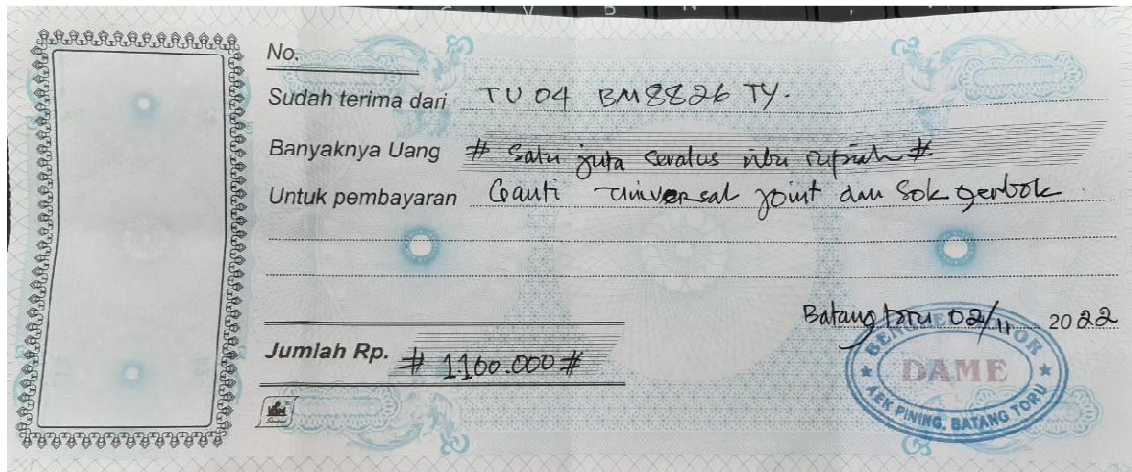 No.
Sudah terima dari TU 04 BM 8826 TY.
Banyaknya Uang # Satu juta seratus ribu rupiah #
Untuk pembayaran Ganti universal joint dan Sok gerbok
Batang toru 02/11 2022
Jumlah Rp. # 1.160.000 #
DAME
AEK PINING, BATANG TORU